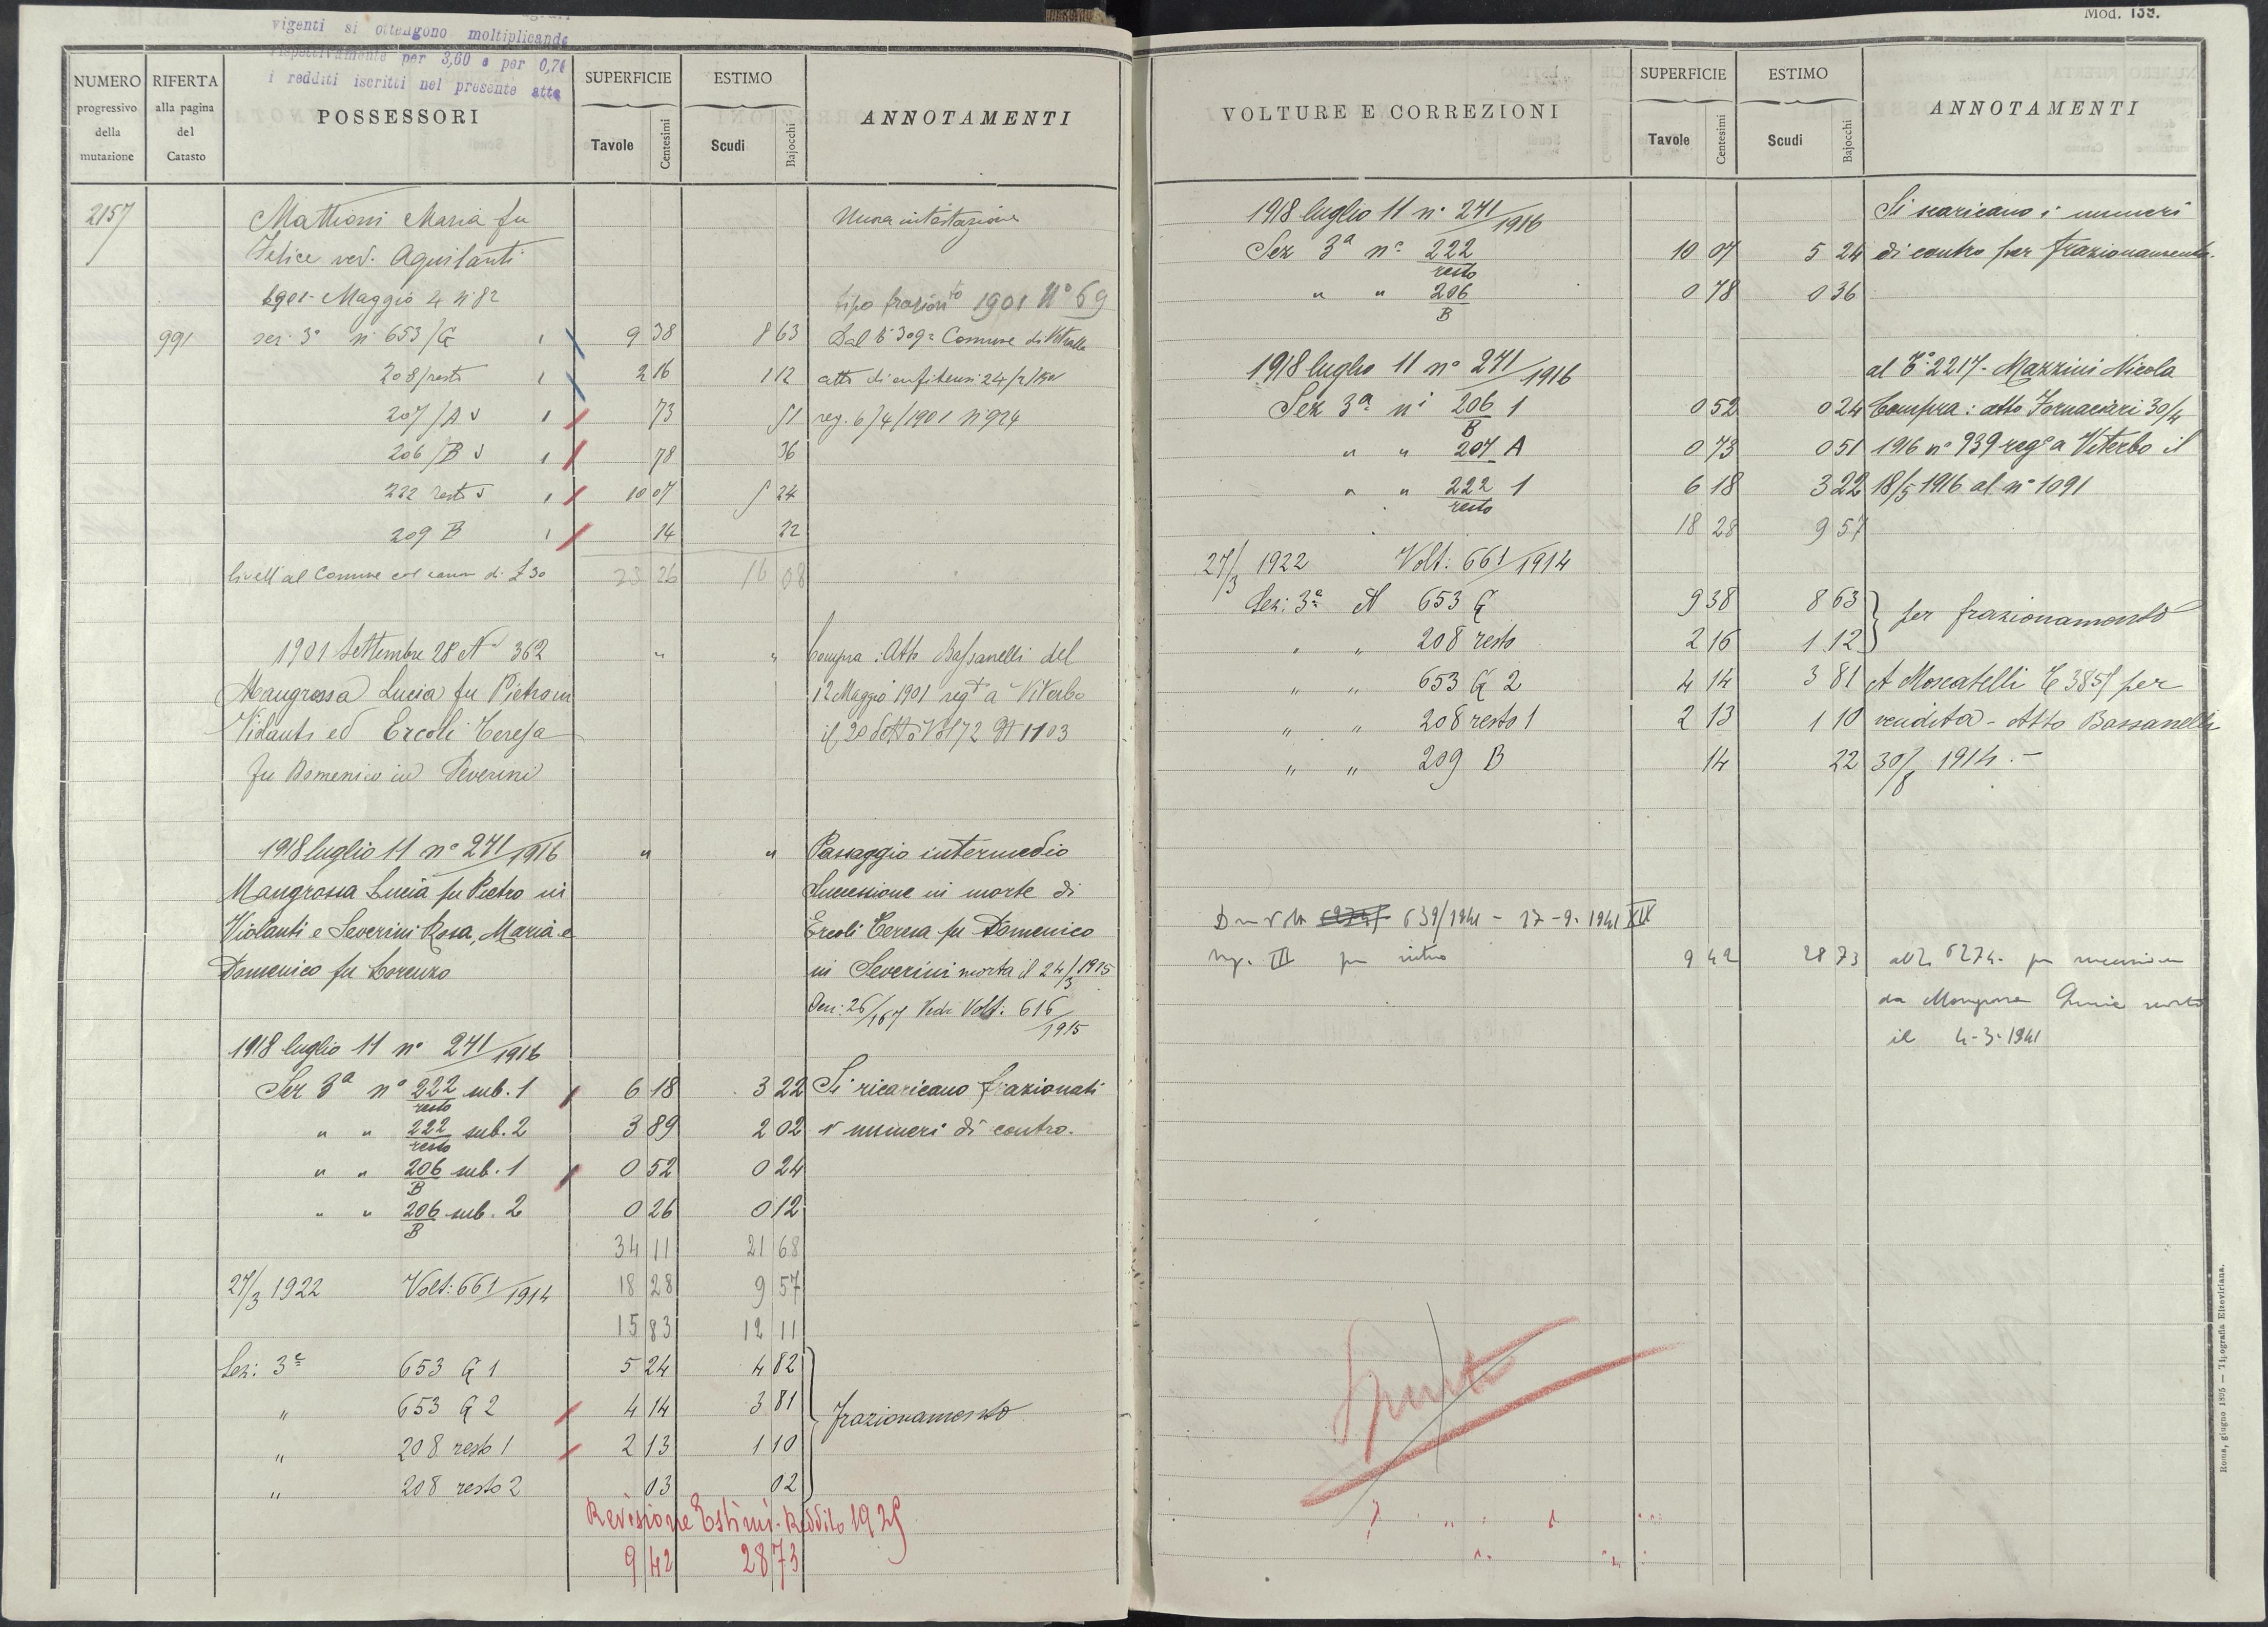 vigenti si ottengono moltiplicando
rispettivamente per 3,60 e per 0,70
i redditi iscritti nel presente atto
NUMERO progressivo della mutazione
RIFERTA alla pagina del Catasto
POSSESSORI
SUPERFICIE
Tavole Centesimi
ESTIMO
Scudi Bajocchi
ANNOTAMENTI
2157 Mattioni Maria fu Nuova intestazione
Felice ved. Aquilanti
1901 - Maggio 4 n 82 tipo frazionto 1901 N° 69
991 sez. 3° n 653/G 9 38 8 63 Dal 309 Comune di Vetralla
208/resto 2 16 1 12 atto di enfiteusi 24/2/1901
207/A 73 51 reg. 6/4/1901 N 924
206/B 78 36
222 resto 10 07 5 24
209 B 14 22
livell al Comune col canon di £ 30 23 26 16 08
1901 Settembre 28 N° 362 " " Compra: Atto Bassanelli del
Mangrossa Lucia fu Pietro in 12 Maggio 1901 regto a Viterbo
Violanti ed Ercoli Teresa il 20 detto Vol 72 N 1103
fu Domenico in Severini
1918 luglio 11 n° 241/1916 " " Passaggio intermedio
Mangrossa Lucia fu Pietro in Successione in morte di
Violanti e Severini Rosa, Maria e Ercoli Teresa fu Domenico
Domenico fu Lorenzo in Severini morta il 24/3 1915
Den: 26/167 Vedi Volt: 616/1915
1918 luglio 11 n° 241/1916
Sez 3a n° 222/resto sub. 1 6 18 3 22 Si ricaricano frazionati
" " 222/resto sub. 2 3 89 2 02 i numeri di contro.
" " 206/B sub. 1 0 52 0 24
" " 206/B sub. 2 0 26 0 12
34 11 21 68
27/3 1922 Volt: 661/1914 18 28 9 57
15 83 12 11
Sez: 3a 653 G 1 5 24 4 82
" 653 G 2 4 14 3 81 frazionamento
" 208 resto 1 2 13 1 10
" 208 resto 2 03 02
Revisione Estimi - Reddito 1925
9 42 28 73
Mod. 139.
VOLTURE E CORREZIONI
SUPERFICIE
Tavole Centesimi
ESTIMO
Scudi Bajocchi
ANNOTAMENTI
1918 luglio 11 n° 241/1916 Si scaricano i numeri
Sez 3a n° 222/resto 10 07 5 24 di contro per frazionamento.
" " 206/B 0 78 0 36
1918 luglio 11 n° 241/1916 al 2217 - Mazzini Nicola
Sez 3a ni 206/B 1 0 52 0 24 Compra: atto Fornaciari 30/4
" " 207 A 0 73 0 51 1916 n° 939 rego a Viterbo il
" " 222/resto 1 6 18 3 22 18/5 1916 al n° 1091
18 28 9 57
27/3 1922 Volt: 661/1914
Sez: 3a N 653 G 9 38 8 63 per frazionamento
" " 208 resto 2 16 1 12
" " 653 G 2 4 14 3 81 A Moscatelli 3855 per
" " 208 resto 1 2 13 1 10 vendita - Atto Bassanelli
" " 209 B 14 22 30/8 1914. -
639/1941 - 17-9-1941 XIX
III per intero 9 42 28 73 6274 per successione
da Mangrossa Lucia morta
il 4-3-1941
Spenta
Roma, giugno 1895 — Tipografia Elzeviriana.